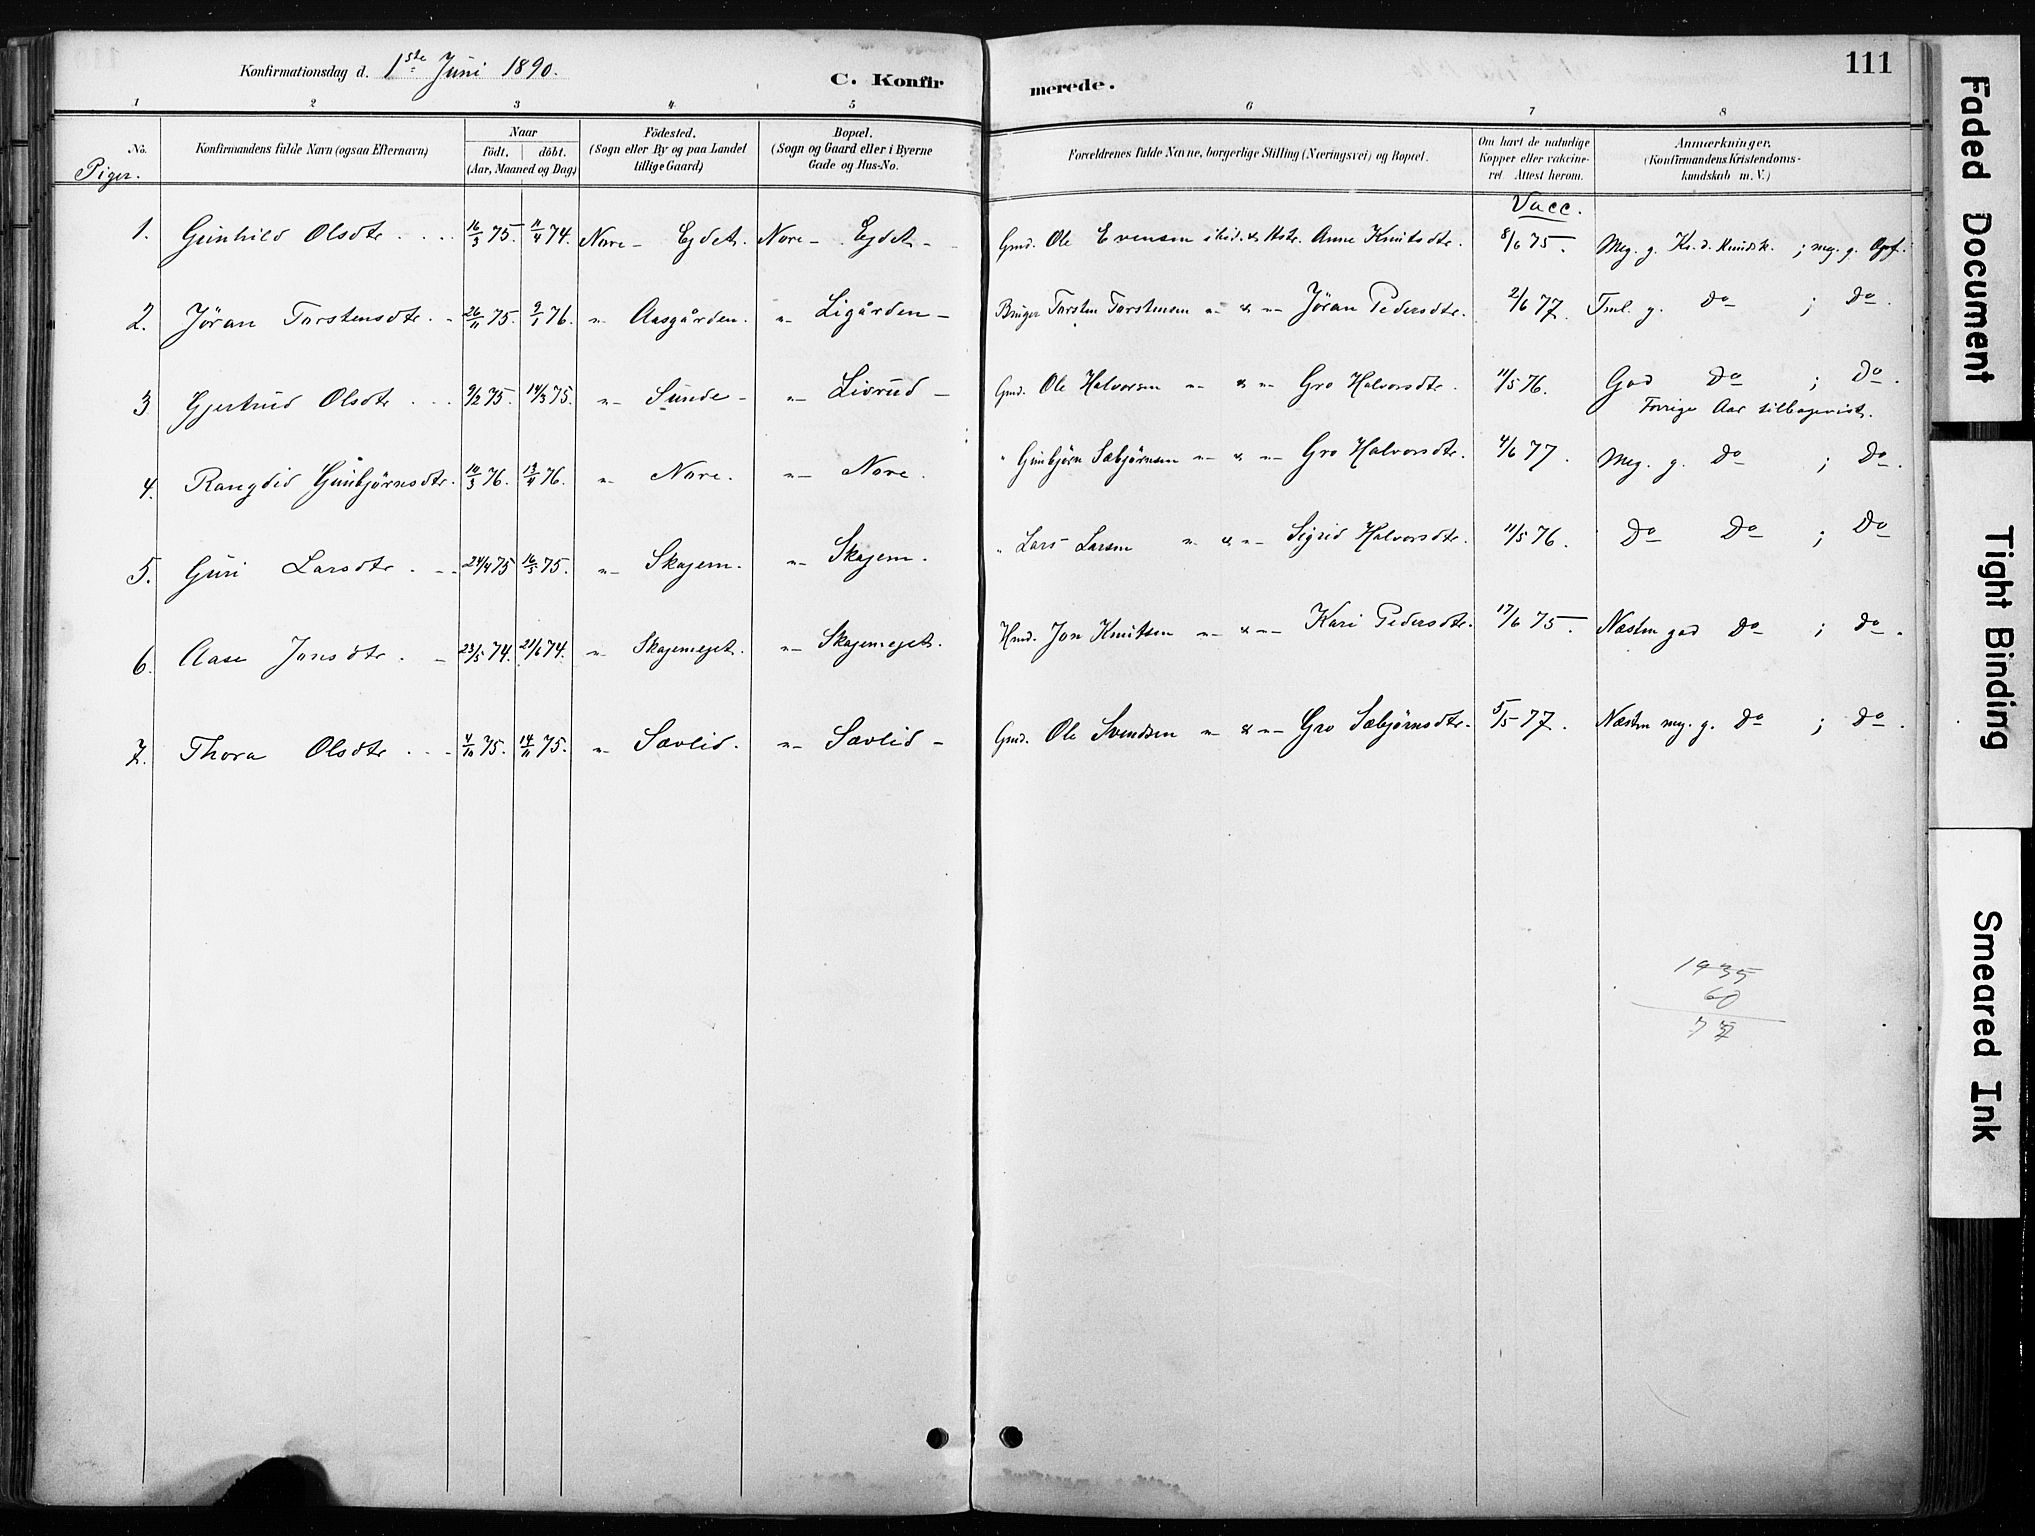 Konfirmationsdag d. 1ste Juni 1890.
C. Konfirmerede.
111
1 2 3 4 5 6 7 8
No.
Piger.
Konfirmandens fulde Navn (ogsaa Efternavn)
Naar
födt. döbt.
(Aar, Maaned og Dag)
Födested.
(Sogn eller By og paa Landet
tillige Gaard)
Bopæl.
(Sogn og Gaard eller i Byerne
Gade og Hus-No.
Forældrenes fulde Navne, borgerlige Stilling (Næringsvei) og Bopæl.
Om havt de naturlige
Kopper eller vakcine-
ret Attest herom.
Anmærkninger,
(Konfirmandens Kristendoms-
kundskab m. V.)
Vacc.
1. Gunhild Olsdtr. 16/3 75. 11/4 74. Nore - Ejdet. Nore - Ejdet - Gmd. Ole Evensen & Hstr. Anne Knutsdtr. 8/6 75. Meg. g. Kr.d. Kundsk. ; meg. g. Opf.
2. Jöran Torstensdtr. 26/11 75. 9/1 76. " Aasgården. " Ligården - Bruger Torsten Torstensen " & " Jöran Pedersdtr. 2/6 77. Tml. g. Do ; Do.
3 Gjertrud Olsdtr. 9/2 75. 14/3 75. " Sunde - " Livrud - Gmd. Ole Halvorsen " & " Gro Halvorsdtr. 11/5 76. God Do ; Do.
Forrige Aar tilbagevist.
4. Rangdid Gunbjörnsdtr. 10/3 76. 13/4 76. " Nore. " Nore. " Gunbjörn Sæbjörnsen " & " Gro Halvorsdtr. 4/6 77. Meg. g. Do ; Do.
5. Guri Larsdtr. 24/4 75 16/5 75. " Skajem. " Skajem. " Lars Larsen " & " Sigrid Halvorsdtr. 11/5 76. Do Do ; Do
6. Aase Jonsdtr. 23/5 74. 21/6 74. " Skajemejet. " Skajemejet. Hmd. Jon Knutsen " & " Kari Pedersdtr. 17/6 75. Næsten god Do ; Do.
7. Thora Olsdtr. 4/10 75. 14/11 75. " Sævlid. " Sævlid - Gmd. Ole Svendsen " & " Gro Sæbjörnsdtr. 5/5 77. Næsten meg. g. Do ; Do.
1935
60
Faded Document
Tight Binding
Smeared Ink